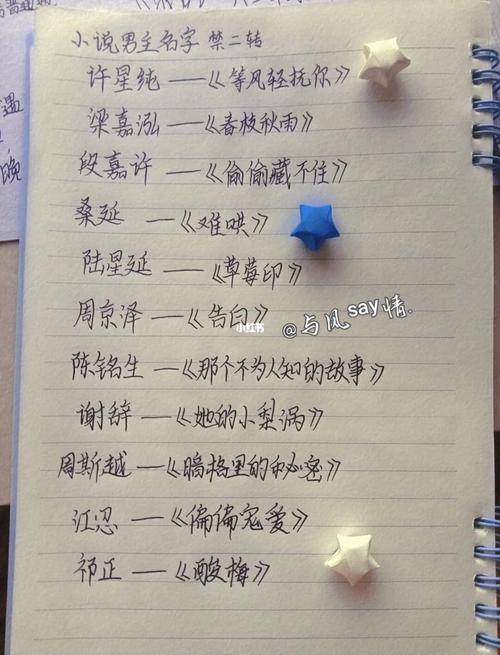 小说男主名字 禁二转
许星纯——《等风轻抚你》
梁嘉泓——《春枝秋雨》
段嘉许——《偷偷藏不住》
桑延 ——《难哄》
陆星延 ——《草莓印》
周京泽——《告白》
小红书
@与风say情.
陈铭生——《那个不为人知的故事》
谢辞——《她的小梨涡》
周斯越——《暗格里的秘密》
江忍——《偏偏宠爱》
祁正——《酸梅》
遇
晚